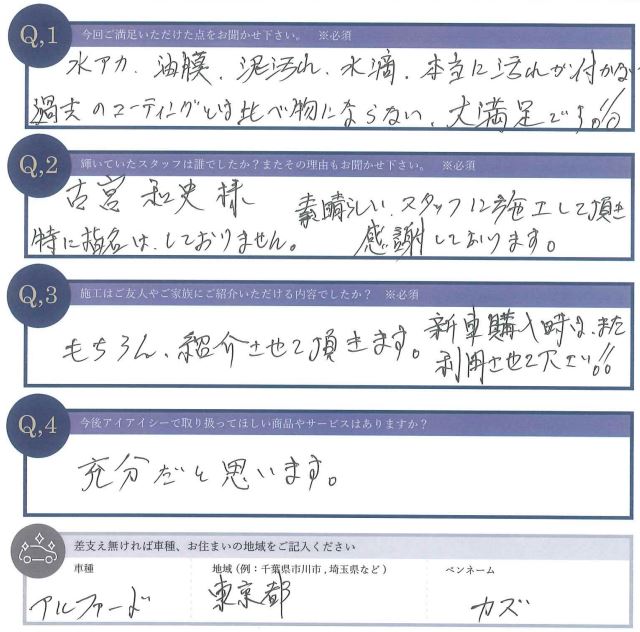 Q,1 今回ご満足いただけた点をお聞かせ下さい。 ※必須
水アカ、油膜、泥汚れ、水滴、本当に汚れが付かない
過去のコーティングとは比べ物にならない、大満足です!!
Q,2 輝いていたスタッフは誰でしたか?またその理由もお聞かせ下さい。 ※必須
古宮 和史 様 素晴しい、スタッフに施工して頂き
特に指名は、しておりません。 感謝しております。
Q,3 施工はご友人やご家族にご紹介いただける内容でしたか? ※必須
もちろん、紹介させて頂きます。 新車購入時は、また
利用させて下さい!!
Q,4 今後アイアイシーで取り扱ってほしい商品やサービスはありますか?
充分だと思います。
差支え無ければ車種、お住まいの地域をご記入ください
車種 地域(例:千葉県市川市,埼玉県など) ペンネーム
アルファード 東京都 カズ